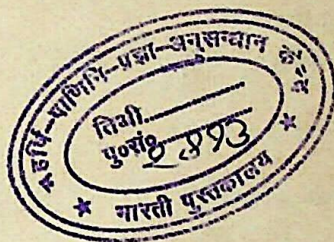 महर्षि-पाणिनि-प्रज्ञा-अनुसन्धान केन्द्र
तिथी..............
पु०सं० 2893
★ भारती पुस्तकालय ★